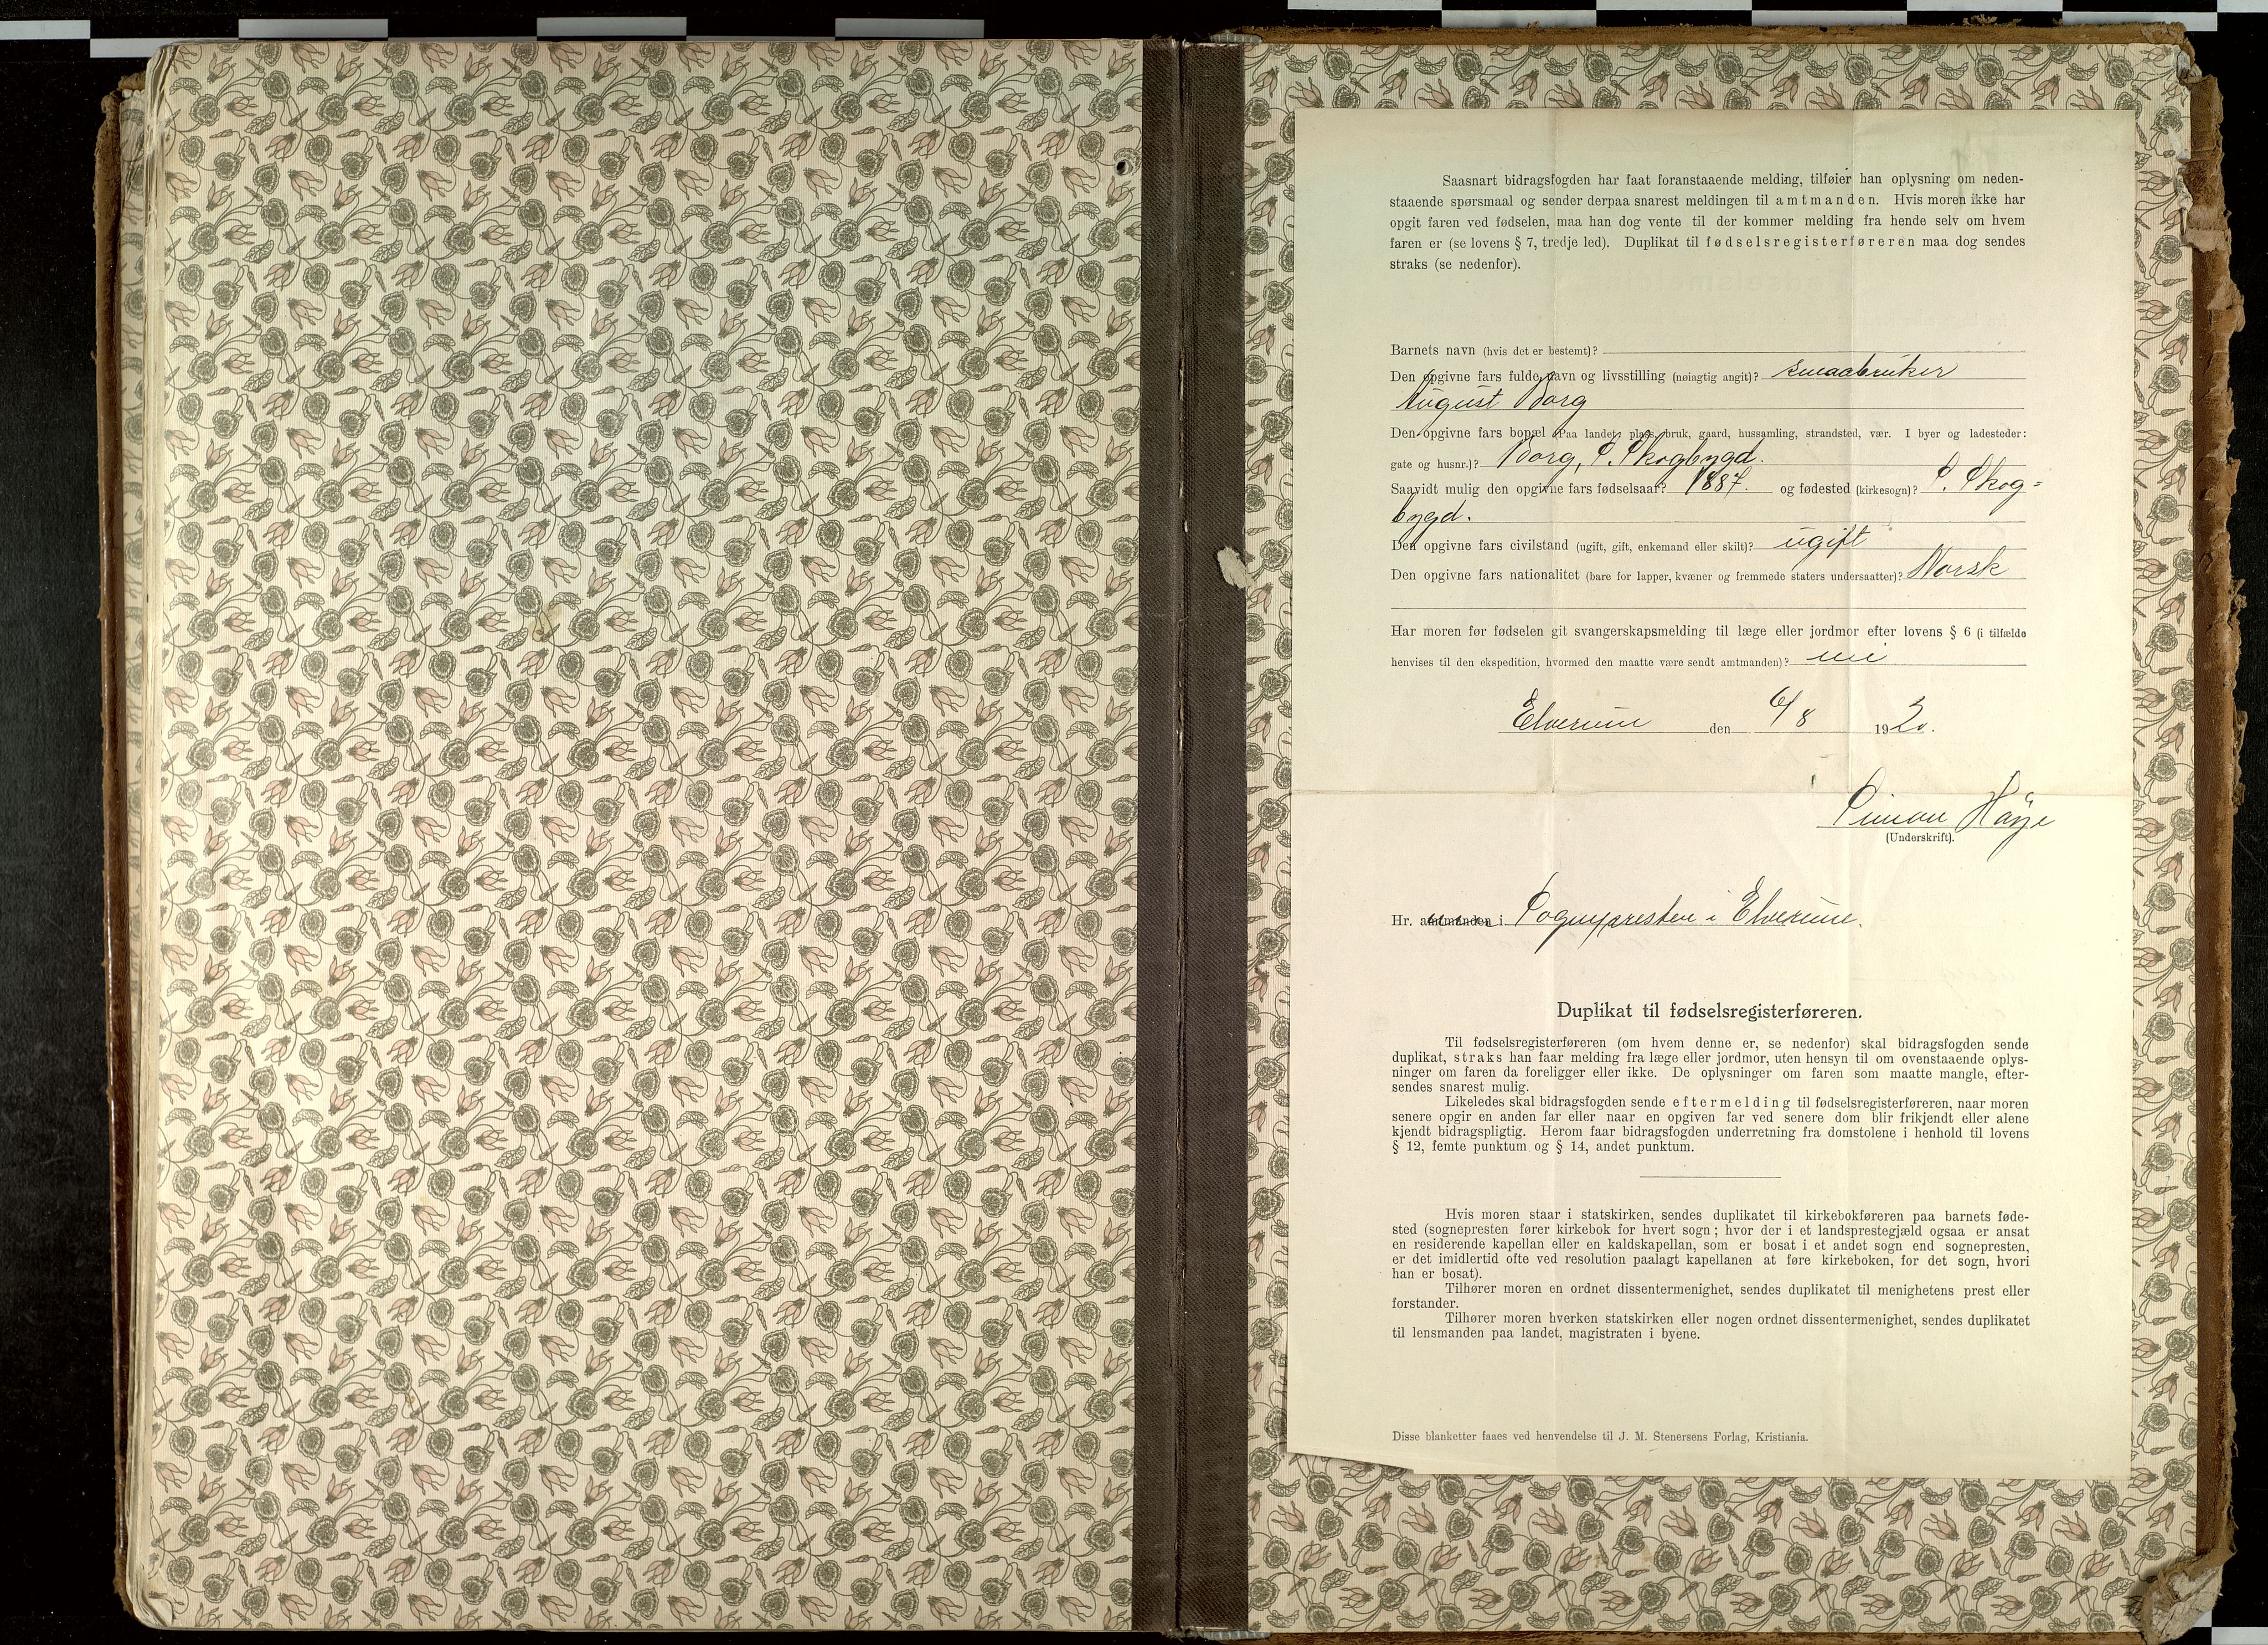 Saasnart bidragsfogden har faat foranstaaende melding, tilføier han oplysning om neden-
staaende spørsmaal og sender derpaa snarest meldingen til amtmanden. Hvis moren ikke har
opgit faren ved fødselen, maa han dog vente til der kommer melding fra hende selv om hvem
faren er (se lovens § 7, tredje led). Duplikat til fødselsregisterføreren maa dog sendes
straks (se nedenfor).
Barnets navn (hvis det er bestemt)?
Den opgivne fars fulde navn og livsstilling (nøiagtig angit)? smaabruker
August Borg
Den opgivne fars bopæl (Paa landet: plass, bruk, gaard, hussamling, strandsted, vær. I byer og ladesteder:
gate og husnr.)? Borg, S. Skogbygd.
Saavidt mulig den opgivne fars fødselsaar? 1887. og fødested (kirkesogn)? S. Skog=
bygd.
Den opgivne fars civilstand (ugift, gift, enkemand eller skilt)? ugift
Den opgivne fars nationalitet (bare for lapper, kvæner og fremmede staters undersaatter)? Norsk
Har moren før fødselen git svangerskapsmelding til læge eller jordmor efter lovens § 6 (i tilfælde
henvises til den ekspedition, hvormed den maatte være sendt amtmanden)? nei
Elverum den 6/8 1920.
Simon Høye
(Underskrift).
Hr. amtmanden i Sognepresten i Elverum.
Duplikat til fødselsregisterføreren.
Til fødselsregisterføreren (om hvem denne er, se nedenfor) skal bidragsfogden sende
duplikat, straks han faar melding fra læge eller jordmor, uten hensyn til om ovenstaaende oplys-
ninger om faren da foreligger eller ikke. De oplysninger om faren som maatte mangle, efter-
sendes snarest mulig.
Likeledes skal bidragsfogden sende eftermelding til fødselsregisterføreren, naar moren
senere opgir en anden far eller naar en opgiven far ved senere dom blir frikjendt eller alene
kjendt bidragspligtig. Herom faar bidragsfogden underretning fra domstolene i henhold til lovens
§ 12, femte punktum og § 14, andet punktum.
Hvis moren staar i statskirken, sendes duplikatet til kirkebokføreren paa barnets føde-
sted (sognepresten fører kirkebok for hvert sogn; hvor der i et landsprestegjæld ogsaa er ansat
en residerende kapellan eller en kaldskapellan, som er bosat i et andet sogn end sognepresten,
er det imidlertid ofte ved resolution paalagt kapellanen at føre kirkeboken, for det sogn, hvori
han er bosat).
Tilhører moren en ordnet dissentermenighet, sendes duplikatet til menighetens prest eller
forstander.
Tilhører moren hverken statskirken eller nogen ordnet dissentermenighet, sendes duplikatet
til lensmanden paa landet, magistraten i byene.
Disse blanketter faaes ved henvendelse til J. M. Stenersens Forlag, Kristiania.